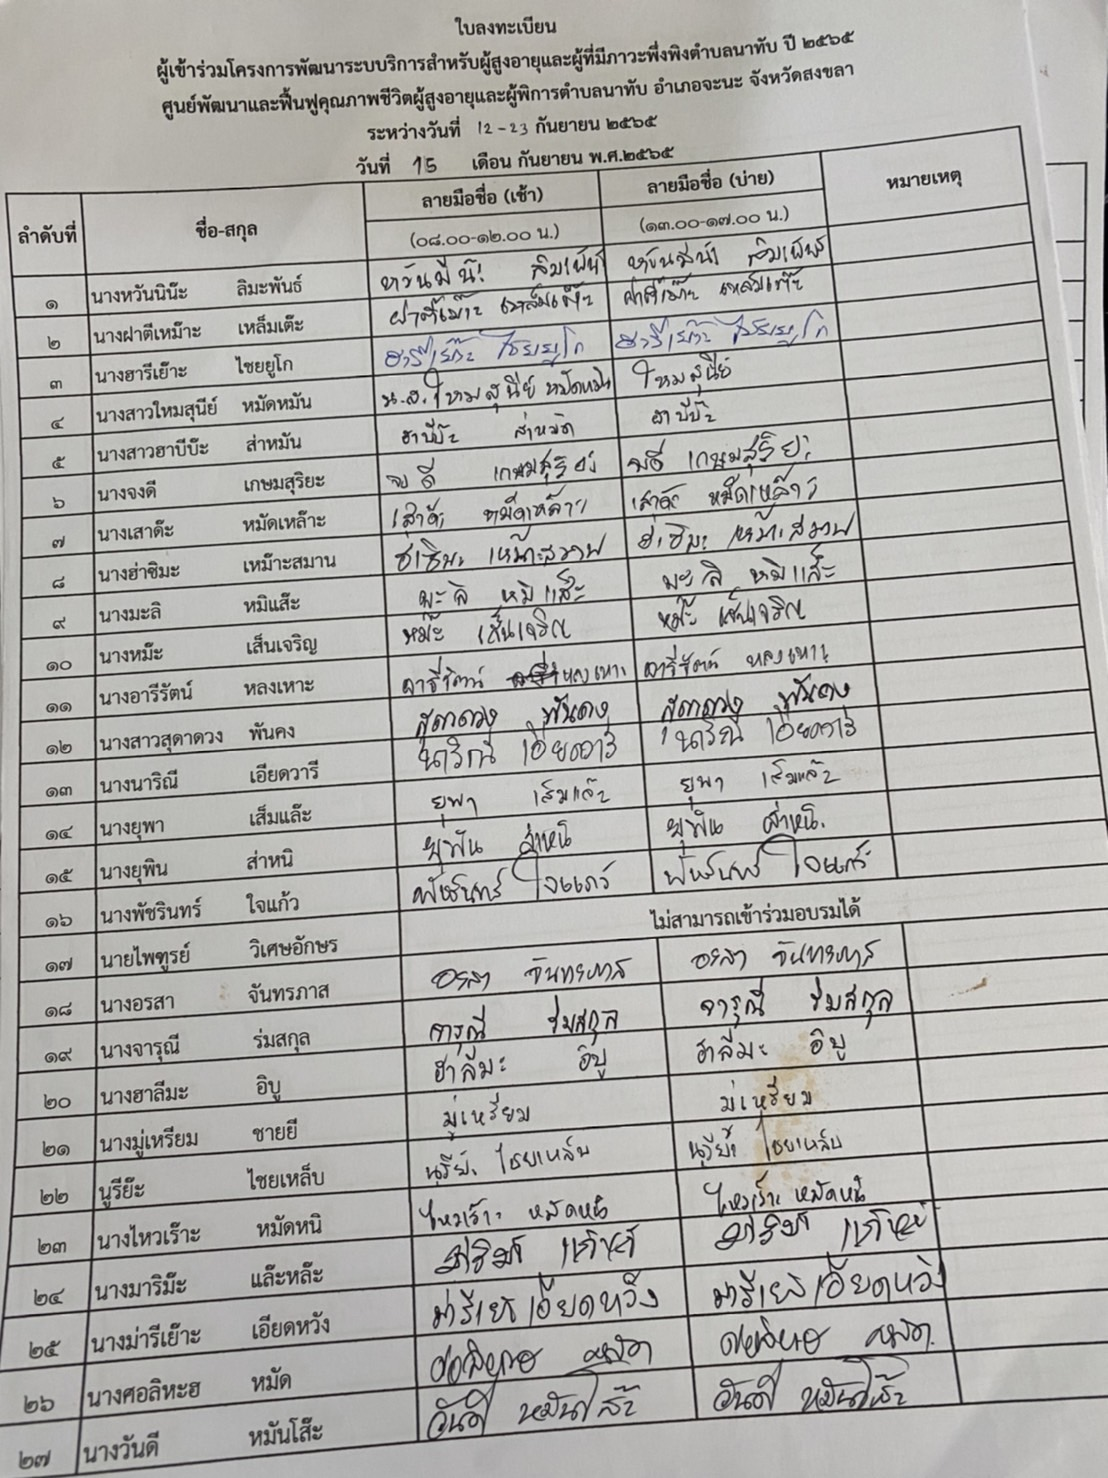 ใบลงทะเบียน
ผู้เข้าร่วมโครงการพัฒนาระบบบริการสำหรับผู้สูงอายุและผู้ที่มีภาวะพึ่งพิงตำบลนาทับ ปี ๒๕๖๕
ศูนย์พัฒนาและฟื้นฟูคุณภาพชีวิตผู้สูงอายุและผู้พิการตำบลนาทับ อำเภอจะนะ จังหวัดสงขลา
ระหว่างวันที่ 12-23 กันยายน ๒๕๖๕
วันที่ 15 เดือน กันยายน พ.ศ.๒๕๖๕
ลำดับที่ ชื่อ-สกุล ลายมือชื่อ (เช้า) ลายมือชื่อ (บ่าย) หมายเหตุ
(๐๘.๐๐-๑๒.๐๐ น.) (๑๓.๐๐-๑๗.๐๐ น.)
๑ นางหวันนิน๊ะ ลิมะพันธ์
๒ นางฝาตีเหม๊าะ เหล็มเต๊ะ
๓ นางฮารีเย๊าะ ไชยยูโก ฮารีเย๊าะ ไชยยูโก ฮารีเย๊าะ ไชยยูโก
๔ นางสาวใหมสุนีย์ หมัดหมัน น.ส.ใหมสุนีย์ หมัดหมัน ใหมสุนีย์
๕ นางสาวฮาบีบ๊ะ ส่าหมัน ฮาบีบ๊ะ ฮาบีบ๊ะ
๖ นางจงดี เกษมสุริยะ จงดี เกษมสุริยะ จงดี เกษมสุริยะ
๗ นางเสาด๊ะ หมัดเหล๊าะ เสาด๊ะ หมัดเหล๊าะ เสาด๊ะ หมัดเหล๊าะ
๘ นางฮ่าซิมะ เหม๊าะสมาน ฮ่าซิมะ เหม๊าะสมาน ฮ่าซิมะ เหม๊าะสมาน
๙ นางมะลิ หมิแส๊ะ มะลิ หมิแส๊ะ มะลิ หมิแส๊ะ
๑๐ นางหม๊ะ เส็นเจริญ หม๊ะ เส็นเจริญ หม๊ะ เส็นเจริญ
๑๑ นางอารีรัตน์ หลงเหาะ อารีรัตน์ หลงเหาะ อารีรัตน์ หลงเหาะ
๑๒ นางสาวสุดาดวง พันคง สุดาดวง พันคง สุดาดวง พันคง
๑๓ นางนาริณี เอียดวารี นาริณี เอียดวารี นาริณี เอียดวารี
๑๔ นางยุพา เส็มแล๊ะ ยุพา เส็มแล๊ะ ยุพา เส็มแล๊ะ
๑๕ นางยุพิน ส่าหนิ ยุพิน ส่าหนิ ยุพิน ส่าหนิ
๑๖ นางพัชรินทร์ ใจแก้ว พัชรินทร์ ใจแก้ว พัชรินทร์ ใจแก้ว
๑๗ นายไพฑูรย์ วิเศษอักษร ไม่สามารถเข้าร่วมอบรมได้
๑๘ นางอรสา จันทรภาส อรสา จันทรภาส อรสา จันทรภาส
๑๙ นางจารุณี ร่มสกุล จารุณี ร่มสกุล จารุณี ร่มสกุล
๒๐ นางฮาลีมะ อิบู ฮาลีมะ อิบู ฮาลีมะ อิบู
๒๑ นางมู่เหรียม ชายยี มู่เหรียม มู่เหรียม
๒๒ นูรีย๊ะ ไชยเหล็บ นูรีย๊ะ ไชยเหล็บ นูรีย๊ะ ไชยเหล็บ
๒๓ นางไหวเร๊าะ หมัดหนิ ไหวเร๊าะ หมัดหนิ ไหวเร๊าะ หมัดหนิ
๒๔ นางมาริม๊ะ แล๊ะหล๊ะ
๒๕ นางม่ารีเย๊าะ เอียดหวัง ม่ารีเย๊าะ เอียดหวัง ม่ารีเย๊าะ เอียดหวัง
๒๖ นางศอลิหะฮ หมัด
๒๗ นางวันดี หมันโส๊ะ วันดี หมันโส๊ะ วันดี หมันโส๊ะ